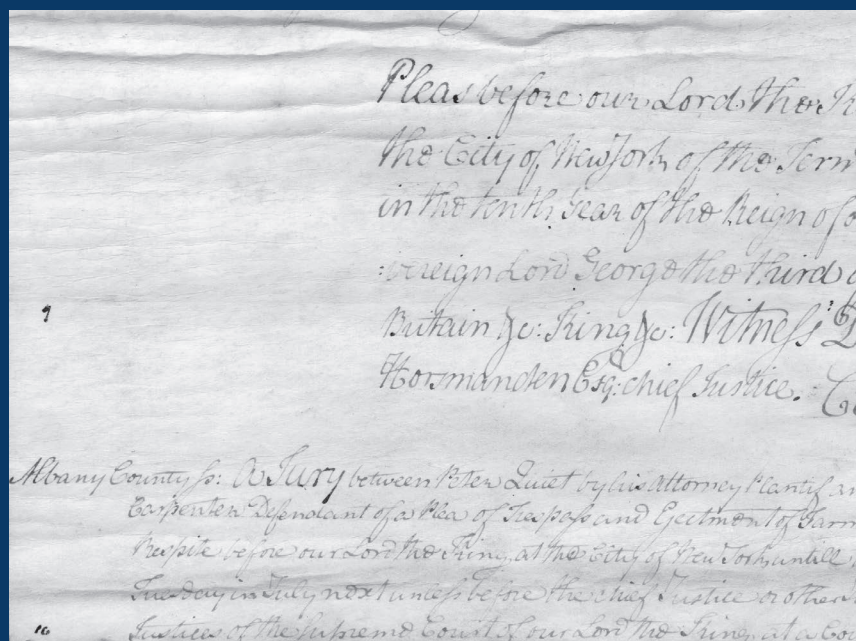 Pleas before our Lord the
the City of New York of the Term
in the tenth Year of the Reign of
Lord George the third
Britain &c: King &c: Witness
Horsmanden Esq: chief Justice.
9
Albany County ss: A Jury between Peter Quiet by his attorney Plantif
Carpenter Defendant of a Plea of Trespass and Ejectment of Farm
Respite before our Lord the King at the City of New York untill
Tuesday in July next unless before the chief Justice or other
10
Justices of the Supreme Court of our Lord the King at a